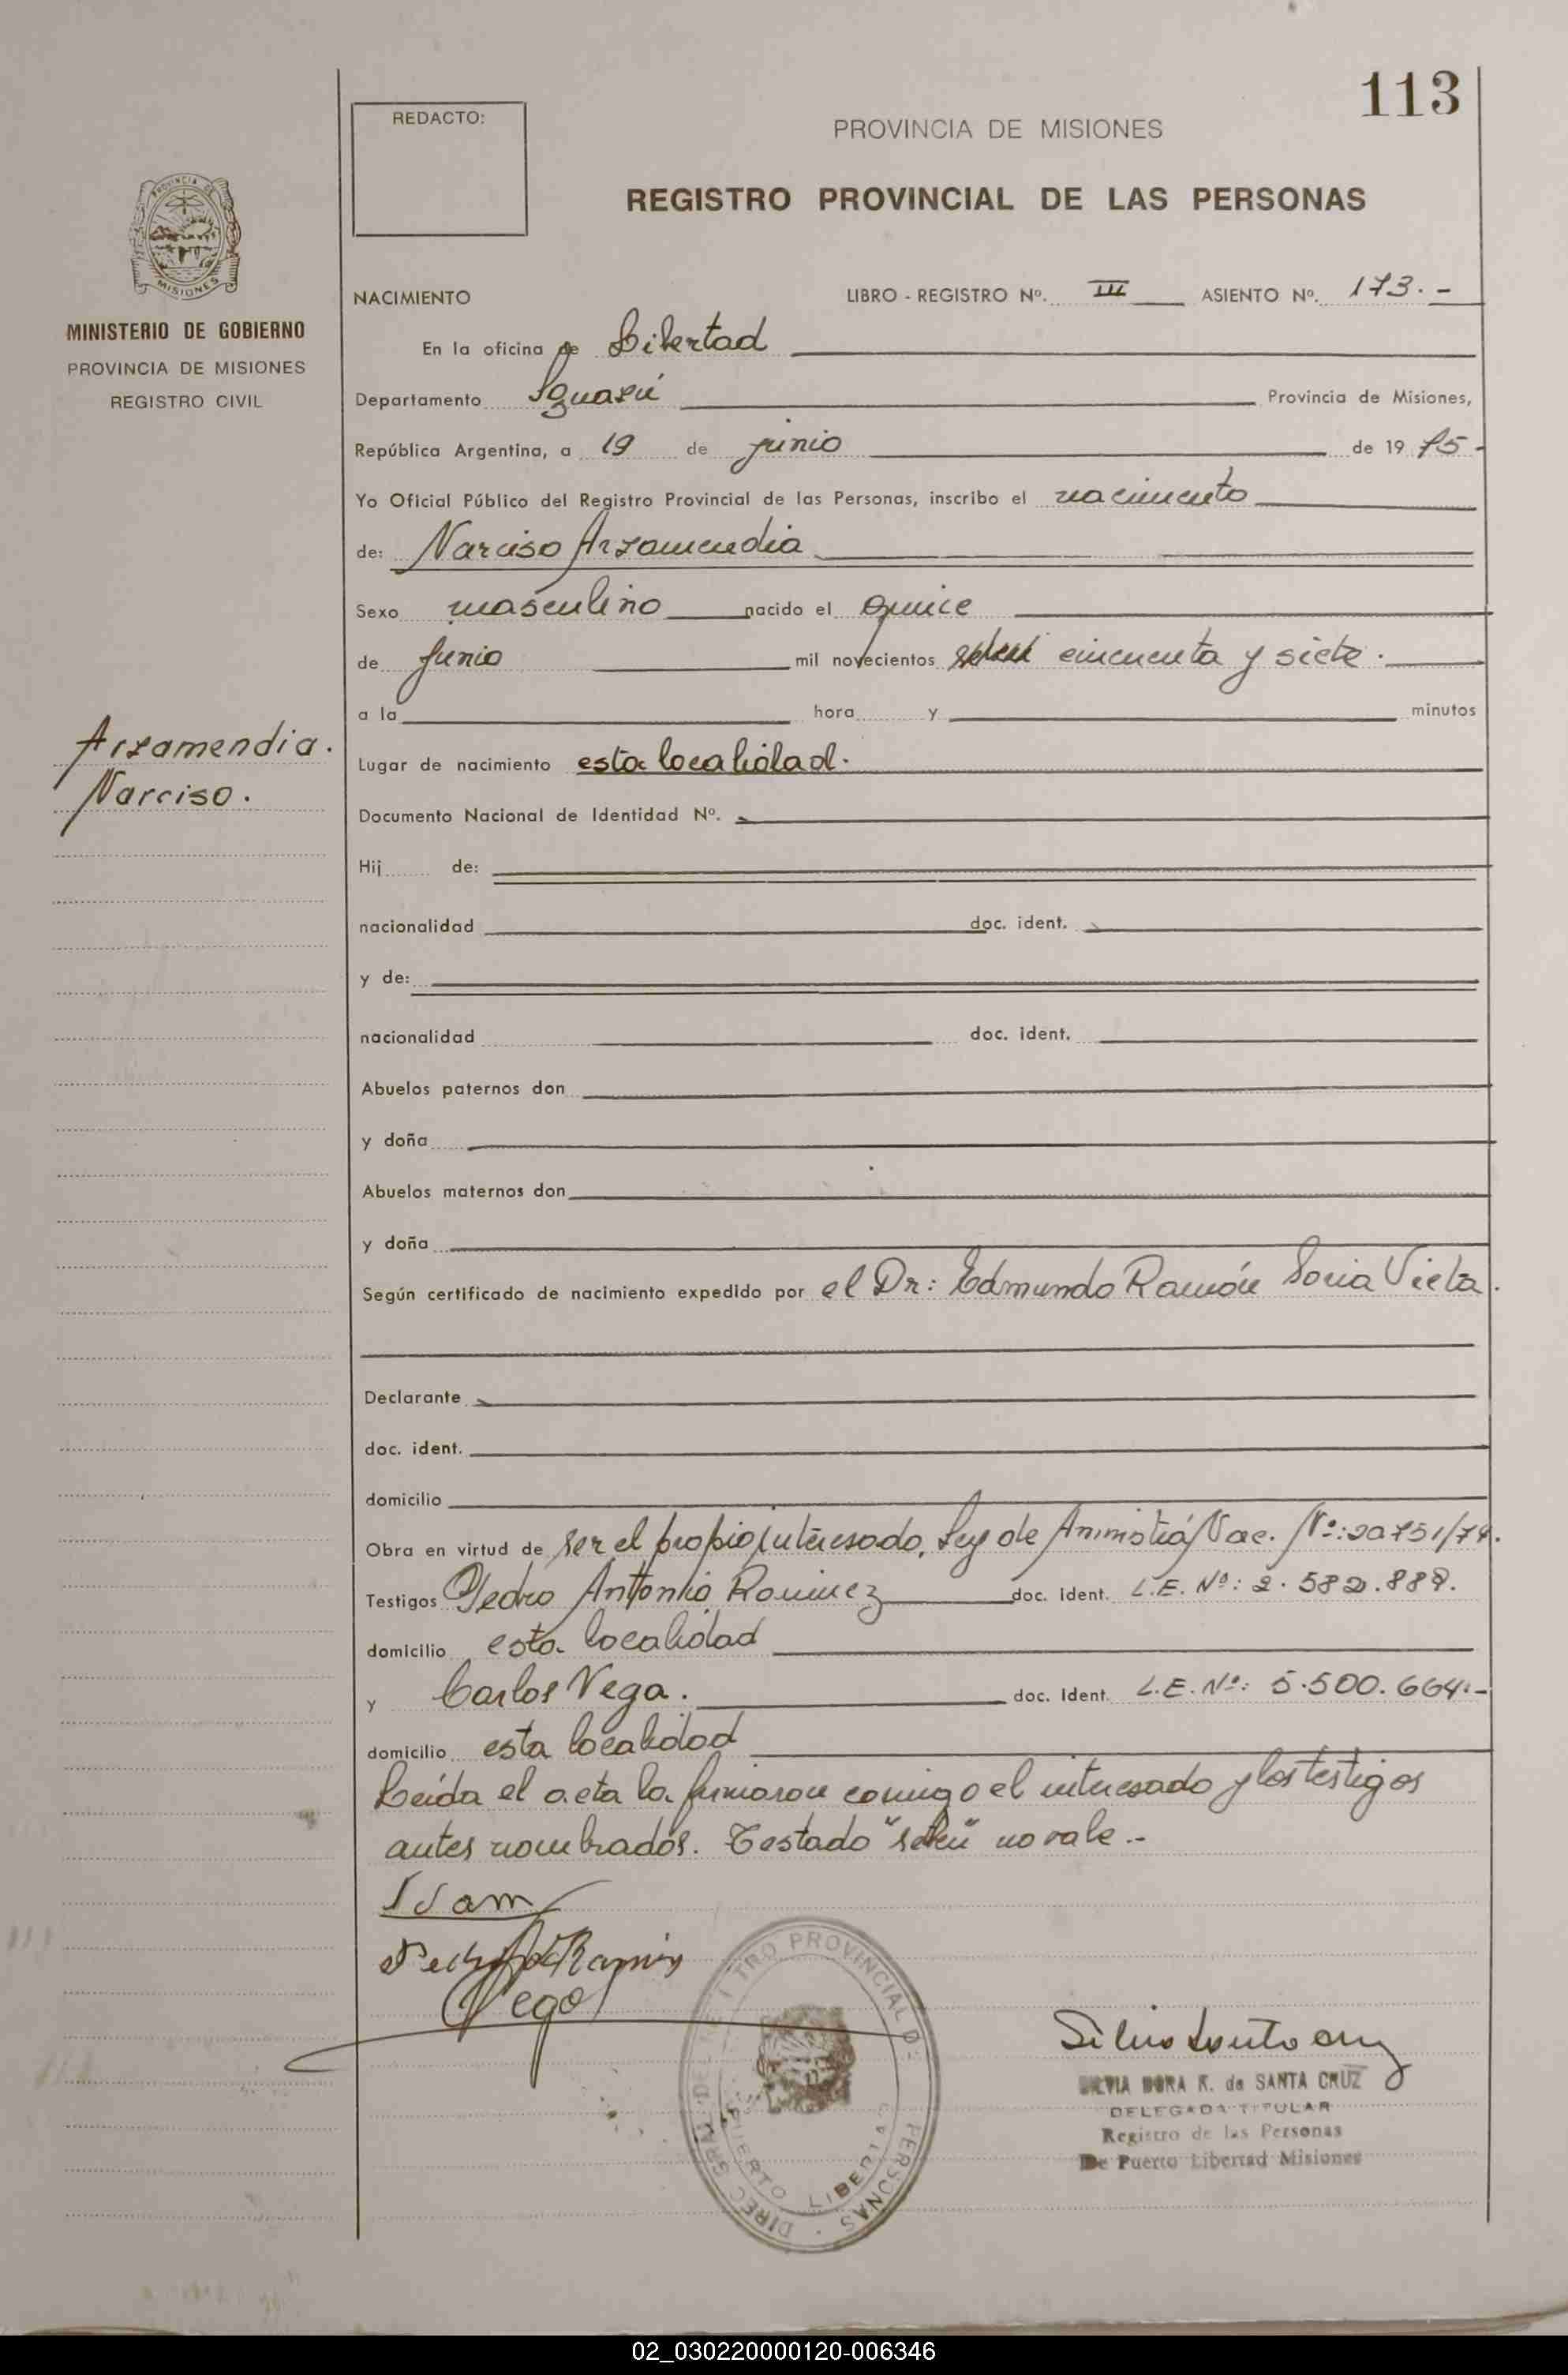 113
REDACTO:
PROVINCIA DE MISIONES
REGISTRO PROVINCIAL DE LAS PERSONAS
PROVINCIA DE
MISIONES
MINISTERIO DE GOBIERNO
PROVINCIA DE MISIONES
REGISTRO CIVIL
NACIMIENTO LIBRO - REGISTRO Nº. III ASIENTO Nº. 173.-
En la oficina de Libertad
Departamento Iguazú Provincia de Misiones,
República Argentina, a 19 de junio de 1975-
Yo Oficial Público del Registro Provincial de las Personas, inscribo el nacimiento
de: Narciso Arzamendia
Sexo masculino nacido el quince
de Junio mil novecientos cincuenta y siete.
a la hora y minutos
Arzamendia.
Narciso.
Lugar de nacimiento esta localidad.
Documento Nacional de Identidad Nº.
Hij de:
nacionalidad doc. ident.
y de:
nacionalidad doc. ident.
Abuelos paternos don
y doña
Abuelos maternos don
y doña
Según certificado de nacimiento expedido por el Dr: Edmundo Ramón Soria Vieta.
Declarante
doc. ident.
domicilio
Obra en virtud de ser el propio interesado, Ley de Amnistiá Nac. Nº: 20751/74.
Testigos Pedro Antonio Ramirez doc. ident. L.E. Nº: 2.582.888.
domicilio esta localidad
y Carlos Vega. doc. ident. L.E. Nº: 5.500.664.-
domicilio esta localidad
Leida el acta la firmaron conmigo el interesado y los testigos
antes nombrados. Testado "seten" no vale.-
Vega
DIREC GRAL DE REGISTRO PROVINCIAL DE PERSONAS
PUERTO LIBERTAD
SILVIA DORA K. de SANTA CRUZ
DELEGADA TITULAR
Registro de las Personas
De Puerto Libertad Misiones
02_030220000120-006346